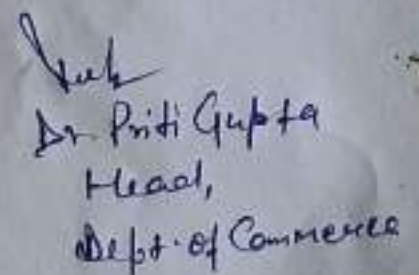 Dr Priti Gupta
Head,
Dept. of Commerce